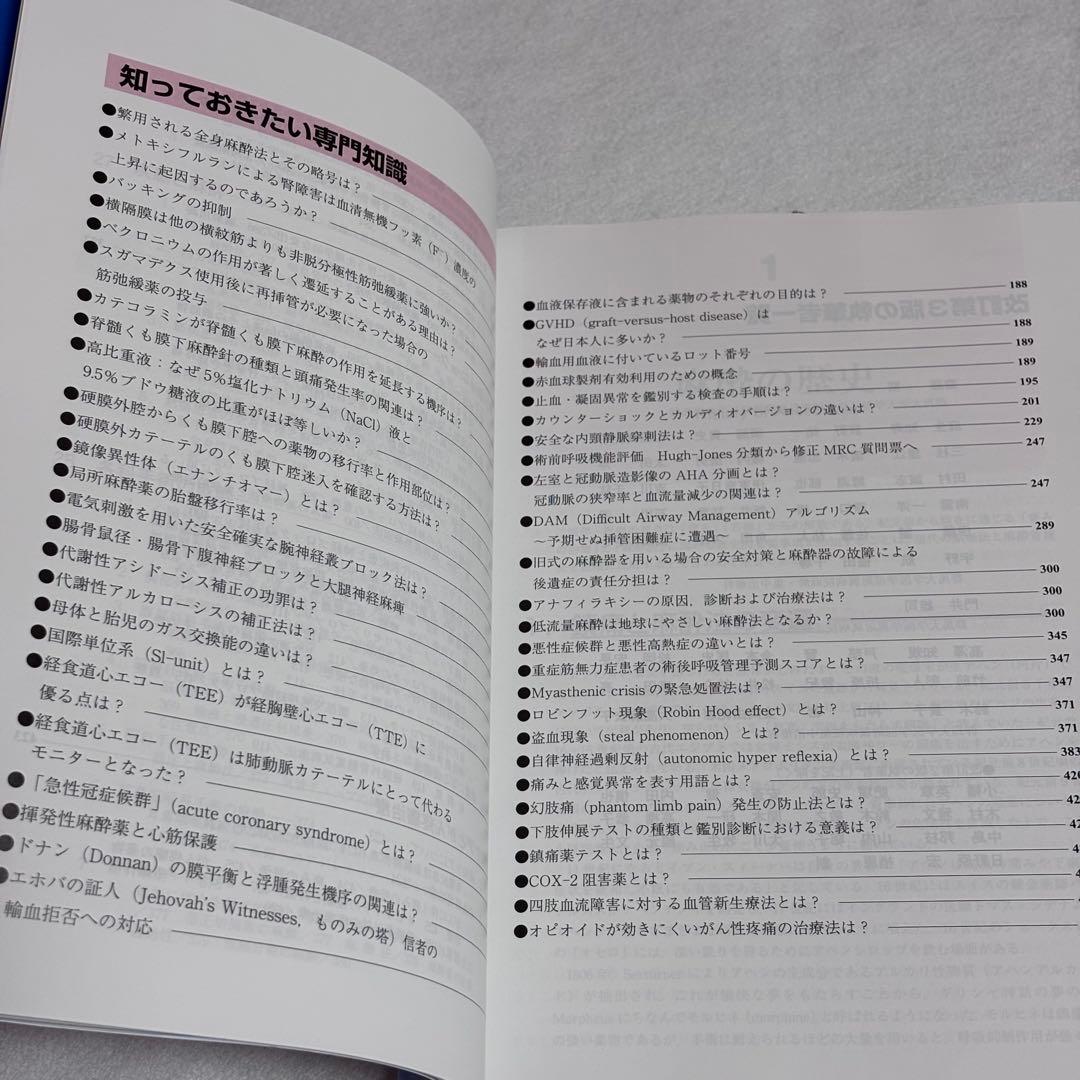 知っておきたい専門知識
●繁用される全身麻酔法とその略号は？
●メトキシフルランによる腎障害は血清無機フッ素（F⁻）濃度の
上昇に起因するのであろうか？
●バッキングの抑制
●横隔膜は他の横紋筋よりも非脱分極性筋弛緩薬に強いか？
●ベクロニウムの作用が著しく遷延することがある理由は？
●スガマデクス使用後に再挿管が必要になった場合の
筋弛緩薬の投与
●カテコラミンが脊髄くも膜下麻酔の作用を延長する機序は？
●脊髄くも膜下麻酔針の種類と頭痛発生率の関連は？
●高比重液：なぜ5％塩化ナトリウム（NaCl）液と
9.5％ブドウ糖液の比重がほぼ等しいか？
●硬膜外腔からくも膜下腔への薬物の移行率と作用部位は？
●硬膜外カテーテルのくも膜下腔迷入を確認する方法は？
●鏡像異性体（エナンチオマー）とは？
●局所麻酔薬の胎盤移行率は？
●電気刺激を用いた安全確実な腕神経叢ブロック法は？
●腸骨鼠径・腸骨下腹神経ブロックと大腿神経麻痺
●代謝性アシドーシス補正の功罪は？
●代謝性アルカローシスの補正法は？
●母体と胎児のガス交換能の違いは？
●国際単位系（Sl-unit）とは？
●経食道心エコー（TEE）が経胸壁心エコー（TTE）に
優る点は？
●経食道心エコー（TEE）は肺動脈カテーテルにとって代わる
モニターとなった？
●「急性冠症候群」（acute coronary syndrome）とは？
●揮発性麻酔薬と心筋保護
●ドナン（Donnan）の膜平衡と浮腫発生機序の関連は？
●エホバの証人（Jehovah's Witnesses，ものみの塔）信者の
輸血拒否への対応
●血液保存液に含まれる薬物のそれぞれの目的は？ 188
●GVHD（graft-versus-host disease）は
なぜ日本人に多いか？ 188
●輸血用血液に付いているロット番号 189
●赤血球製剤有効利用のための概念 189
●止血・凝固異常を鑑別する検査の手順は？ 195
●カウンターショックとカルディオバージョンの違いは？ 201
●安全な内頸静脈穿刺法は？ 229
●術前呼吸機能評価　Hugh-Jones 分類から修正 MRC 質問票へ 247
●左室と冠動脈造影像の AHA 分画とは？
冠動脈の狭窄率と血流量減少の関連は？ 247
●DAM（Difficult Airway Management）アルゴリズム
〜予期せぬ挿管困難症に遭遇〜 289
●旧式の麻酔器を用いる場合の安全対策と麻酔器の故障による
後遺症の責任分担は？ 300
●アナフィラキシーの原因，診断および治療法は？ 300
●低流量麻酔は地球にやさしい麻酔法となるか？ 300
●悪性症候群と悪性高熱症の違いとは？ 345
●重症筋無力症患者の術後呼吸管理予測スコアとは？ 347
●Myasthenic crisis の緊急処置法は？ 347
●ロビンフット現象（Robin Hood effect）とは？ 371
●盗血現象（steal phenomenon）とは？ 371
●自律神経過剰反射（autonomic hyper reflexia）とは？ 383
●痛みと感覚異常を表す用語とは？ 420
●幻肢痛（phantom limb pain）発生の防止法とは？
●下肢伸展テストの種類と鑑別診断における意義は？
●鎮痛薬テストとは？
●COX-2 阻害薬とは？
●四肢血流障害に対する血管新生療法とは？
●オピオイドが効きにくいがん性疼痛の治療法は？